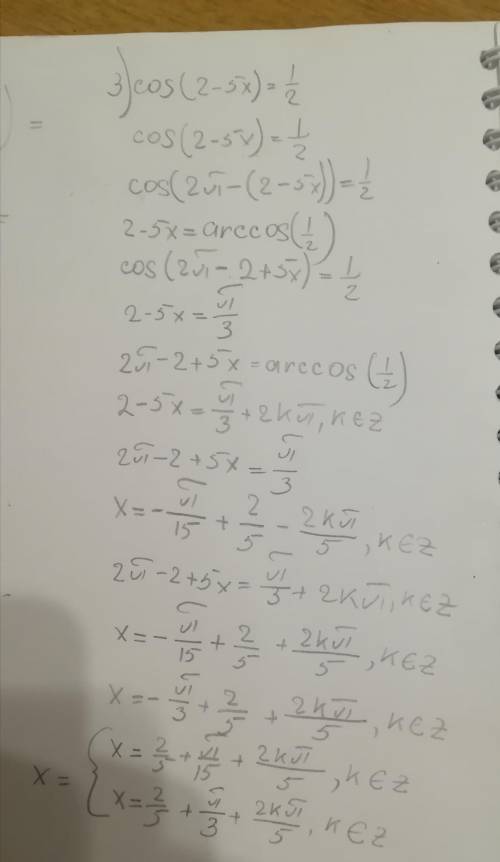 3) cos(2-5x)=1/2
=
cos(2-5x)=1/2
cos(2π-(2-5x))=1/2
2-5x=arccos(1/2)
cos(2π-2+5x)=1/2
2-5x=π/3
2π-2+5x=arccos(1/2)
2-5x=π/3+2kπ, k∈Z
2π-2+5x=π/3
x=-π/15+2/5-2kπ/5, k∈Z
2π-2+5x=π/3+2kπ, k∈Z
x=-π/15+2/5+2kπ/5, k∈Z
x=-π/3+2/5+2kπ/5, k∈Z
x={x=2/5+π/15+2kπ/5, k∈Z
x=2/5+π/3+2kπ/5, k∈Z